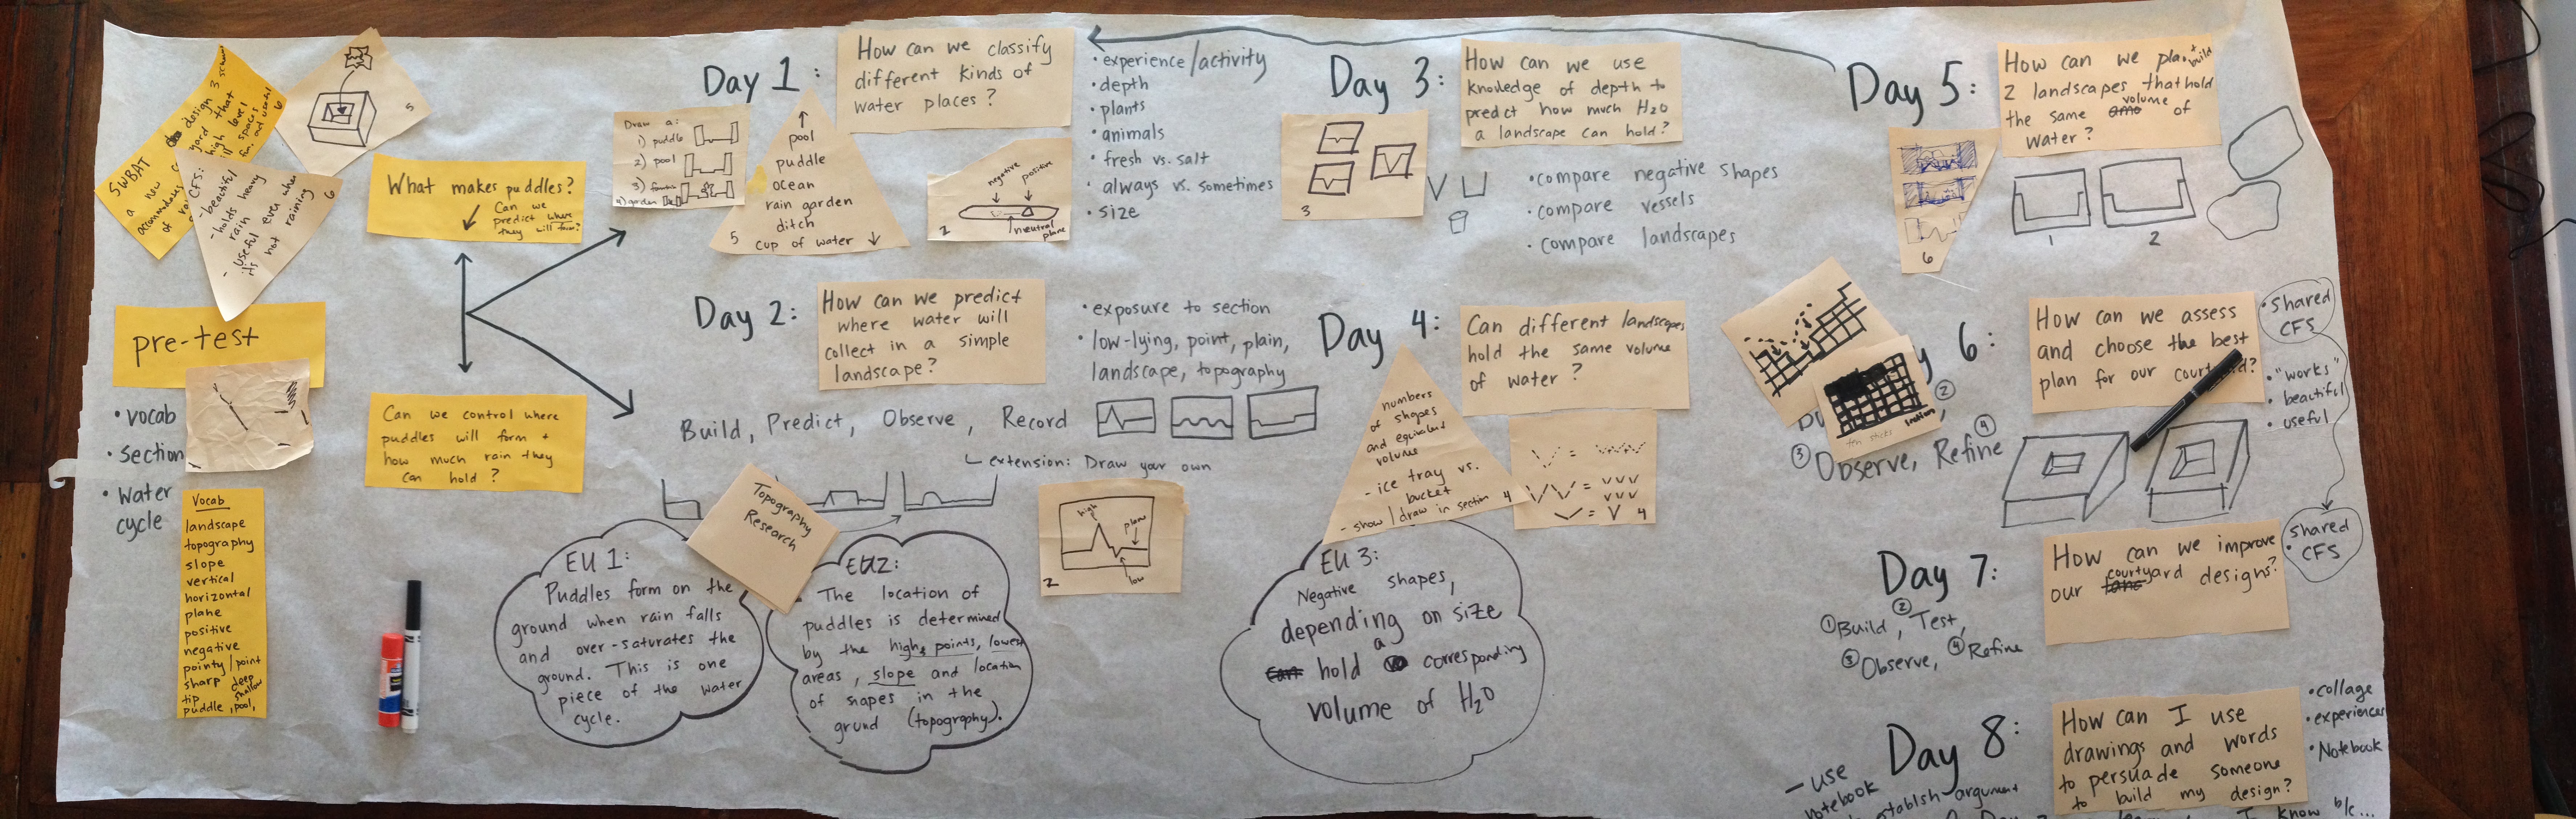 SWBAT design 3
a new yard that
accommodates high level
of spaces
CFS:
- beautiful
- holds heavy
rain
- useful even when
it's not raining
6
5
What makes puddles?
Can we
predict where
they will form?
pre-test
• vocab
• section
• water
cycle
Vocab
landscape
topography
slope
vertical
horizontal
plane
positive
negative
pointy/point
sharp deep
tip shallow
puddle, pool,
Can we control where
puddles will form +
how much rain they
can hold?
Day 1:
How can we classify
different kinds of
water places?
Draw a:
1) puddle
2) pool
3) fountain
4) garden
pool
puddle
ocean
rain garden
ditch
5 cup of water
negative
positive
neutral
plane
2
• experience/activity
• depth
• plants
• animals
• fresh vs. salt
• always vs. sometimes
• size
Day 2:
How can we predict
where water will
collect in a simple
landscape?
• exposure to section
• low-lying, point, plain,
landscape, topography
Build, Predict, Observe, Record
extension: Draw your own
Topography
Research
high
plane
low
2
EU 1:
Puddles form on the
ground when rain falls
and over-saturates the
ground. This is one
piece of the water
cycle.
EU2:
The location of
puddles is determined
by the high points, lowest
areas, slope and location
of shapes in the
grund (topography).
Day 3:
How can we use
knowledge of depth to
predict how much H2O
a landscape can hold?
3
• compare negative shapes
• compare vessels
• compare landscapes
Day 4:
Can different landscapes
hold the same volume
of water?
numbers
of shapes
and equivalent
volume
- ice tray vs.
bucket
- show/draw in section 4
4
EU 3:
Negative shapes,
depending on size
hold a corresponding
volume of H2O
Day 5:
How can we plan + build
2 landscapes that hold
the same volume of
water?
6
1
2
6:
How can we assess
and choose the best
plan for our courtyard?
②
③ Observe, ④ Refine
• shared
CFS
• "works"
• beautiful
• useful
• shared
CFS
Day 7:
How can we improve
our courtyard designs?
① Build, ② Test,
③ Observe, ④ Refine
Day 8:
How can I use
drawings and words
to persuade someone
to build my design?
• collage
• experiences
• Notebook
- use
notebook
establsh argument
I know b/c...